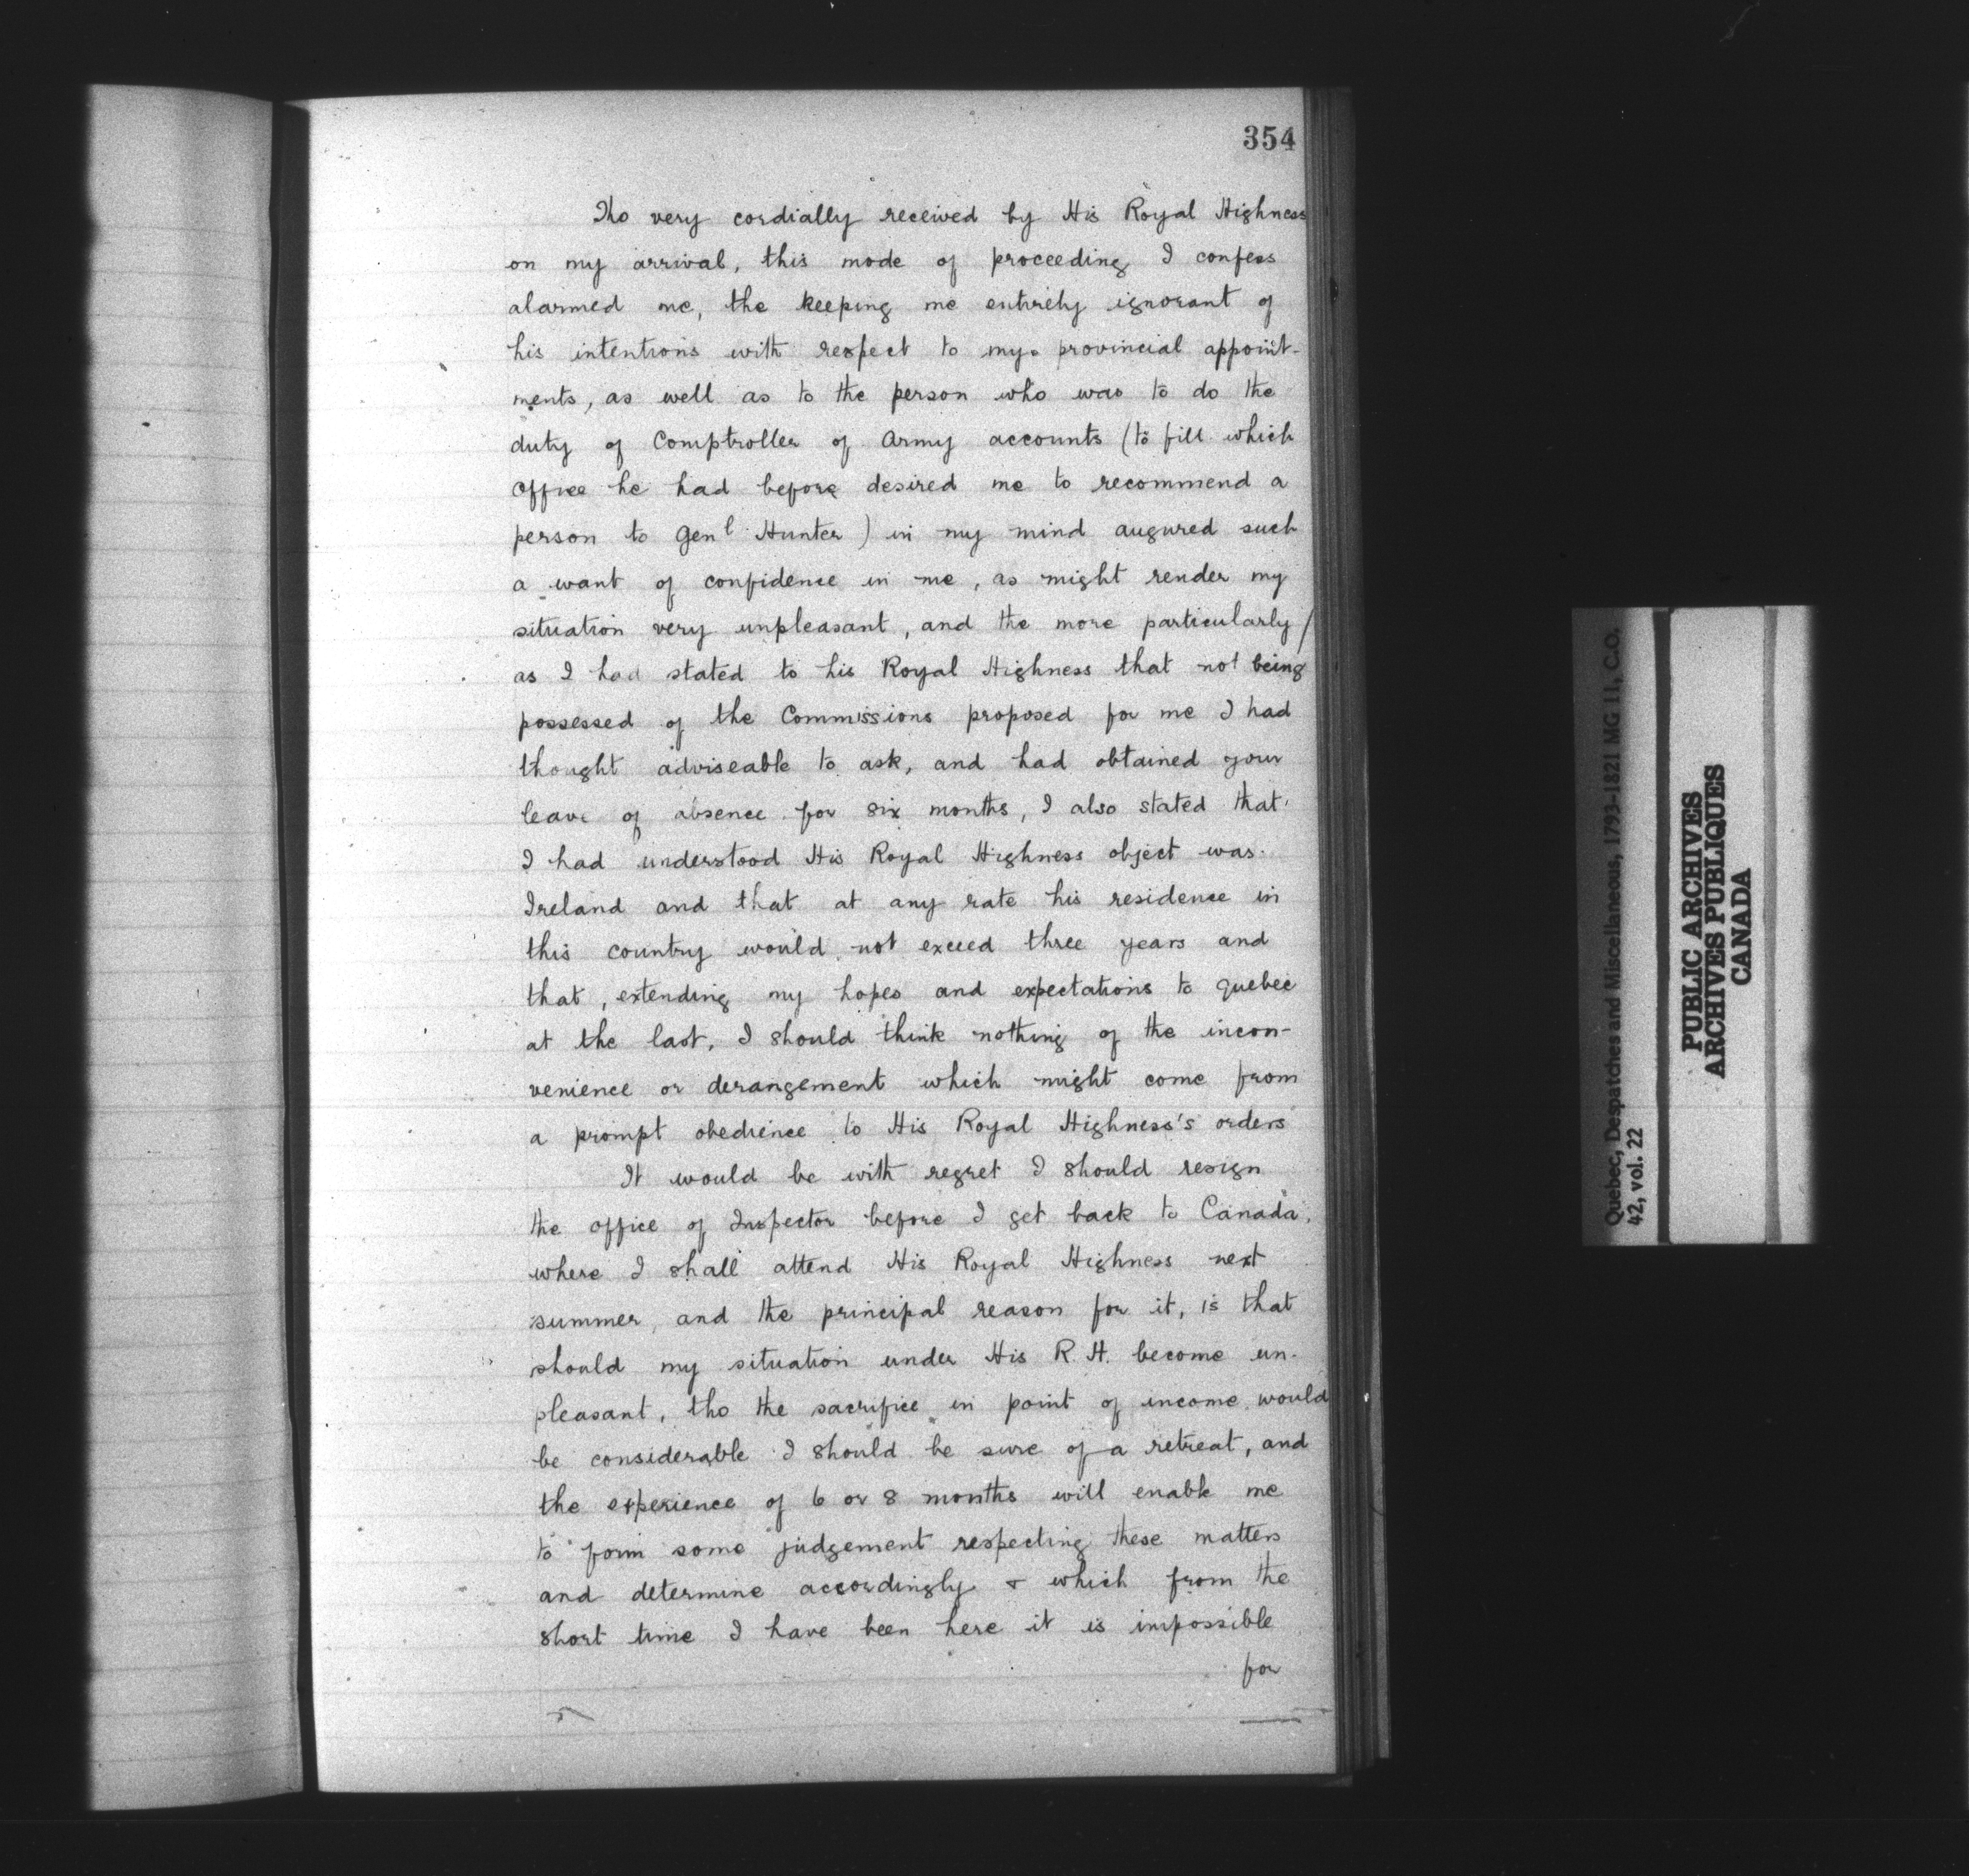 354
Tho very cordially received by His Royal Highness
on my arrival, this mode of proceeding I confess
alarmed me, the keeping me entirely ignorant of
his intentions with respect to my provincial appoint-
ments, as well as to the person who was to do the
duty of Comptroller of Army accounts (to fill which
Office he had before desired me to recommend a
person to Genl Hunter) in my mind augured such
a want of confidence in me, as might render my
situation very unpleasant, and the more particularly
as I had stated to his Royal Highness that not being
possessed of the Commissions proposed for me I had
thought adviseable to ask, and had obtained your
leave of absence for six months, I also stated that
I had understood His Royal Highness object was
Ireland and that at any rate his residence in
this country would not exceed three years and
that, extending my hopes and expectations to Quebec
at the last, I should think nothing of the incon-
venience or derangement which might come from
a prompt obedience to His Royal Highness's orders
It would be with regret I should resign
the office of Inspector before I get back to Canada,
where I shall attend His Royal Highness next
summer, and the principal reason for it, is that
should my situation under His R. H. become un-
pleasant, tho the sacrifice in point of income would
be considerable I should be sure of a retreat, and
the experience of 6 or 8 months will enable me
to form some judgement respecting these matters
and determine accordingly & which from the
short time I have been here it is impossible
for
Quebec, Despatches and Miscellaneous, 1793-1821 MG 11, C.O.
42, vol. 22
PUBLIC ARCHIVES
ARCHIVES PUBLIQUES
CANADA